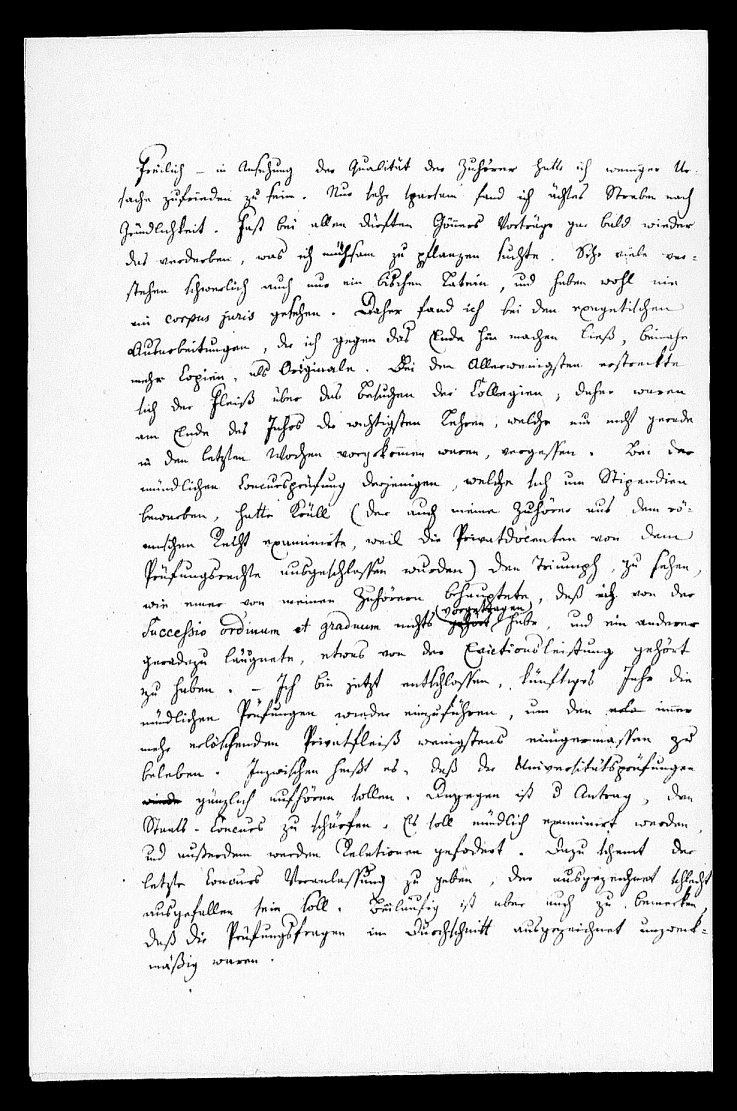 Freilich – in Ansehung der Qualität der Zuhörer hatte ich weniger Ur-
sache zufrieden zu sein. Nur sehr sparsam fand ich ächtes Streben nach
Gründlichkeit. Fast bei allen dürften Gönners Vorträge gar bald wieder
das verderben, was ich mühsam zu pflanzen suchte. Sehr viele ver-
stehen schwerlich auch nur ein bischen Latein, und haben wohl nie
ein corpus juris gesehen. Daher fand ich bei den exegetischen
Ausarbeitungen, die ich gegen das Ende hin machen ließ, beinahe
mehr Copien, als Originale. Bei den Allerwenigsten erstreckte
sich der Fleiß über das Besuchen der Collegien; daher waren
am Ende des Jahrs die wichtigsten Lehren, welche nur nicht gerade
in den letzten Wochen vorgekommen waren, vergessen. Bei der
mündlichen Concursprüfung derjenigen, welche sich um Stipendien
bewarben, hatte Krüll (der auch meine Zuhörer aus dem rö-
mischen Recht examinirte, weil die Privatdocenten von dem
Prüfungsrechte ausgeschlossen wurden) den Triumph, zu sehen,
wie einer von meinen Zuhörern behauptete, daß ich von der
Successio ordinum et graduum nichts (vorgetragen) habe, und ein anderer
geradezu läugnete, etwas von der Evictionsleistung gehört
zu haben. – Ich bin jetzt entschlossen, künftiges Jahr die
mündlichen Prüfungen wieder einzuführen, um den immer
mehr erlöschenden Privatfleiß wenigstens einigermassen zu
beleben. Inzwischen heißt es, daß die Universitätsprüfungen
gänzlich aufhören sollen. Dagegen ist d Antrag, den
Staats-Concurs zu schärfen. Es soll mündlich examinirt werden,
und außerdem werden Relationen gefodert. Dazu scheint der
letzte Concurs Veranlassung zu geben, der ausgezeichnet schlecht
ausgefallen sein soll. Beiläufig ist aber auch zu bemerken,
daß die Prüfungsfragen im Durchschnitt ausgezeichnet unzweck-
mäßig waren.